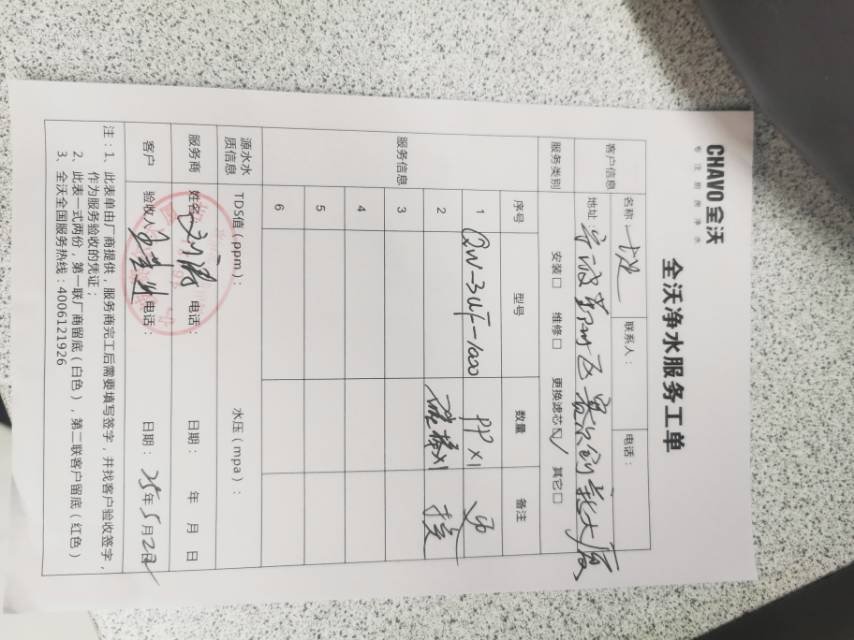 CHAVO 全沃
专注厨房净水
全沃净水服务工单
客户信息 名称: 联系人: 电话:
地址:
服务类别 安装□ 维修□ 更换滤芯☑ 其它□
服务信息 序号 型号 数量 备注
1 QW-3UF-1000 PP x1
2 x1
3
4
5
6
源水水质信息 TDS值(ppm): 水压(mpa):
服务商 姓名: 电话: 日期: 年 月 日
客户 验收人: 电话: 日期: 25年5月2日
注:1、此表单由厂商提供,服务商完工后需要填写签字,并找客户验收签字,
作为服务验收的凭证;
2、此表一式两份,第一联厂商留底(白色),第二联客户留底(红色)
3、全沃全国服务热线:4006121926